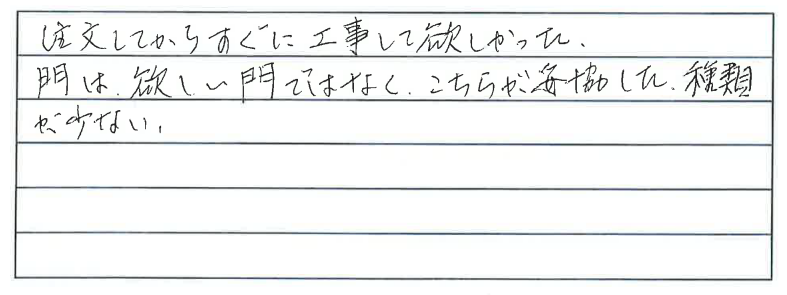 注文してからすぐに工事して欲しかった.
門は、欲しい門ではなく、こちらが妥協した、種類
が少ない.